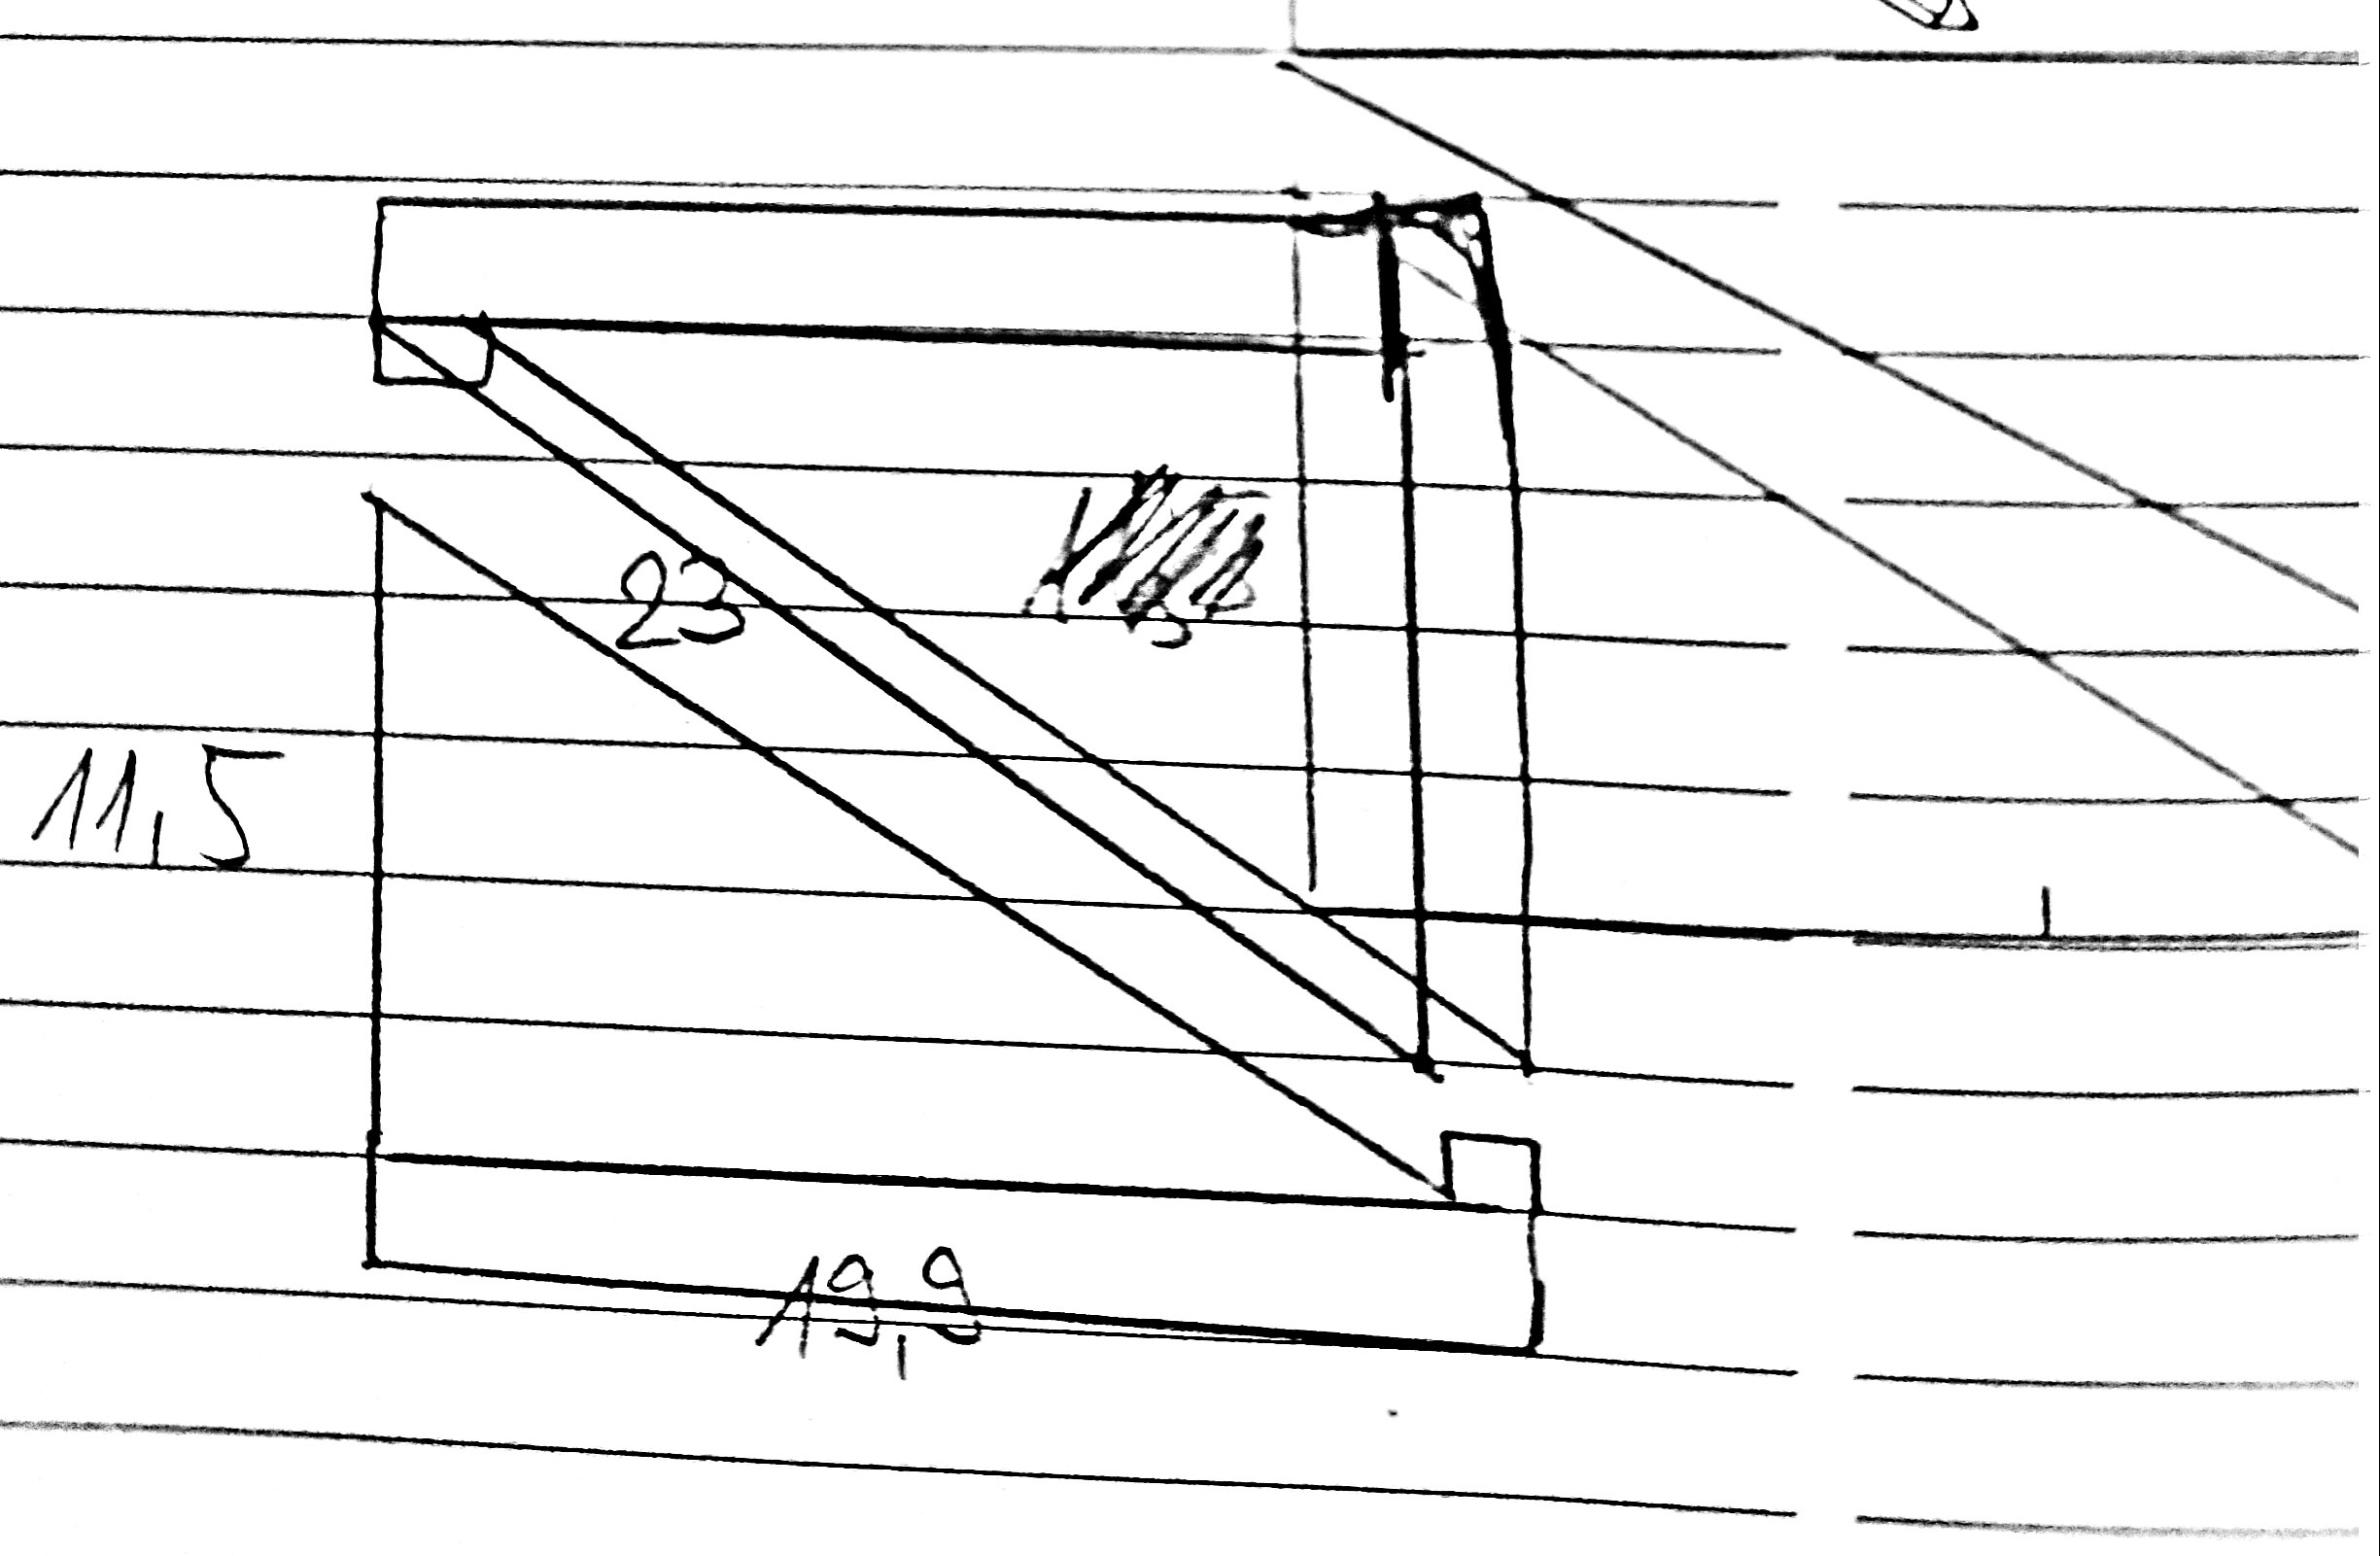 23
11,5
19,9